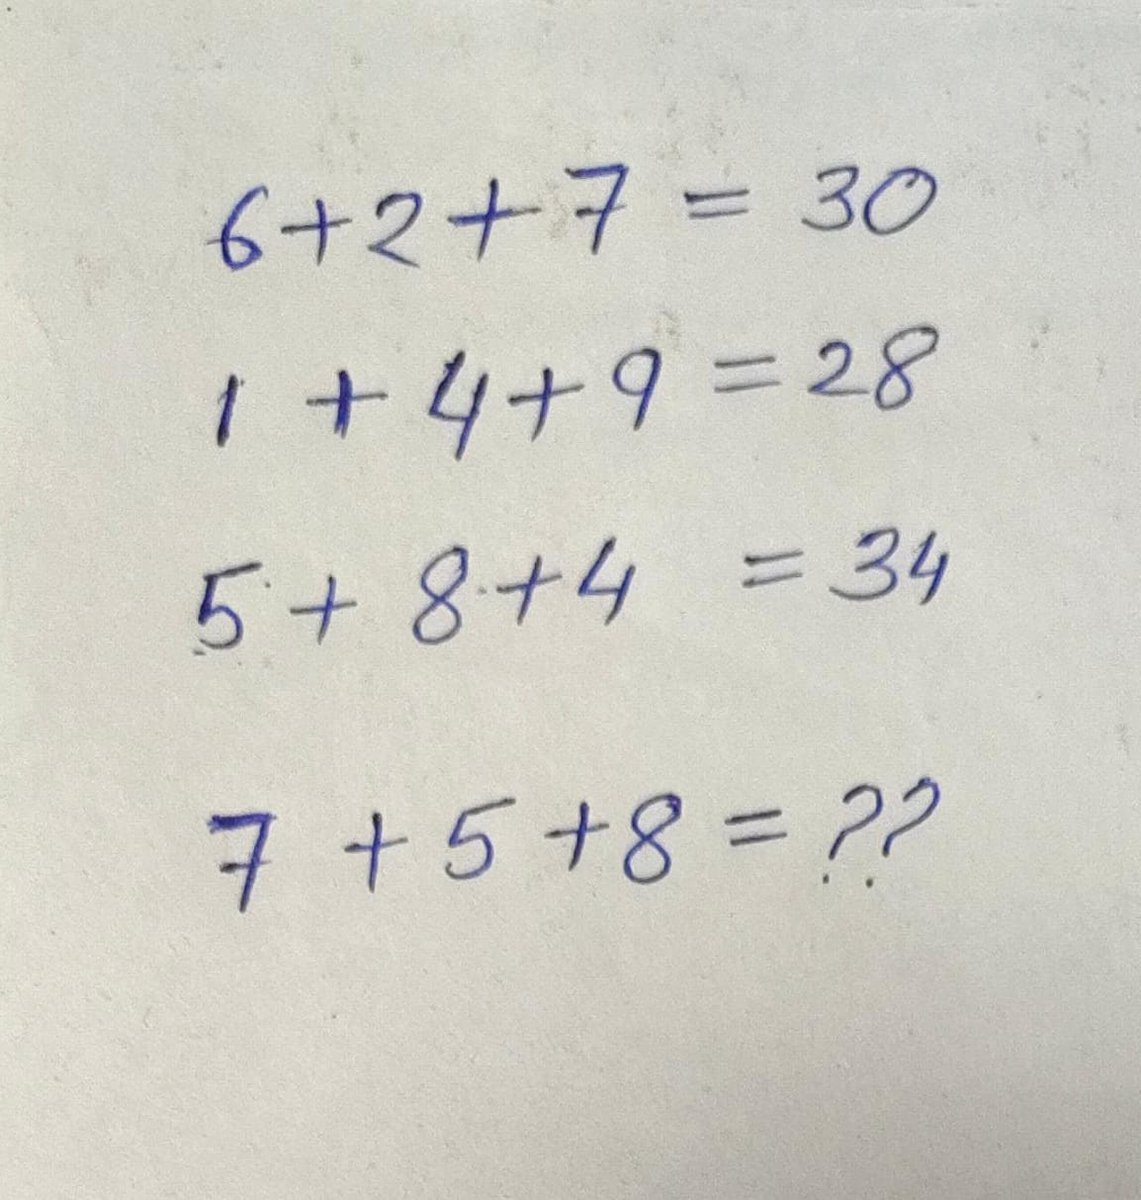 6+2+7 = 30
1 + 4+9 = 28
5+ 8+4 = 34
7 +5+8 = ??